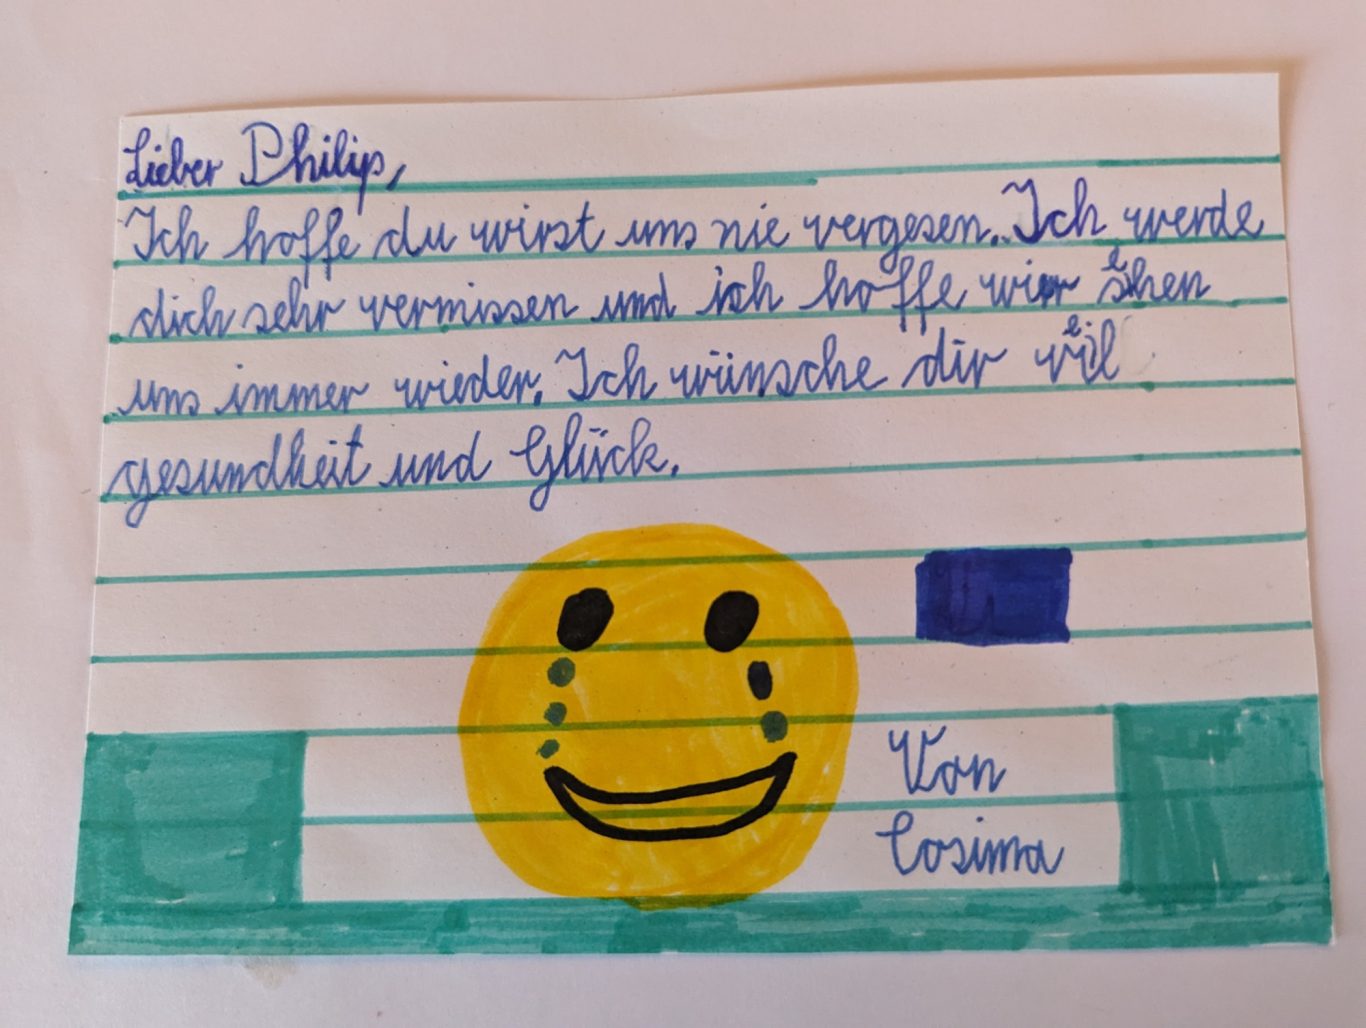 Lieber Philip,
Ich hoffe du wirst uns nie vergesen. Ich werde
dich sehr vermissen und ich hoffe wir sehen
uns immer wieder. Ich wünsche dir viel
gesundheit und Glück.
Von
Cosima